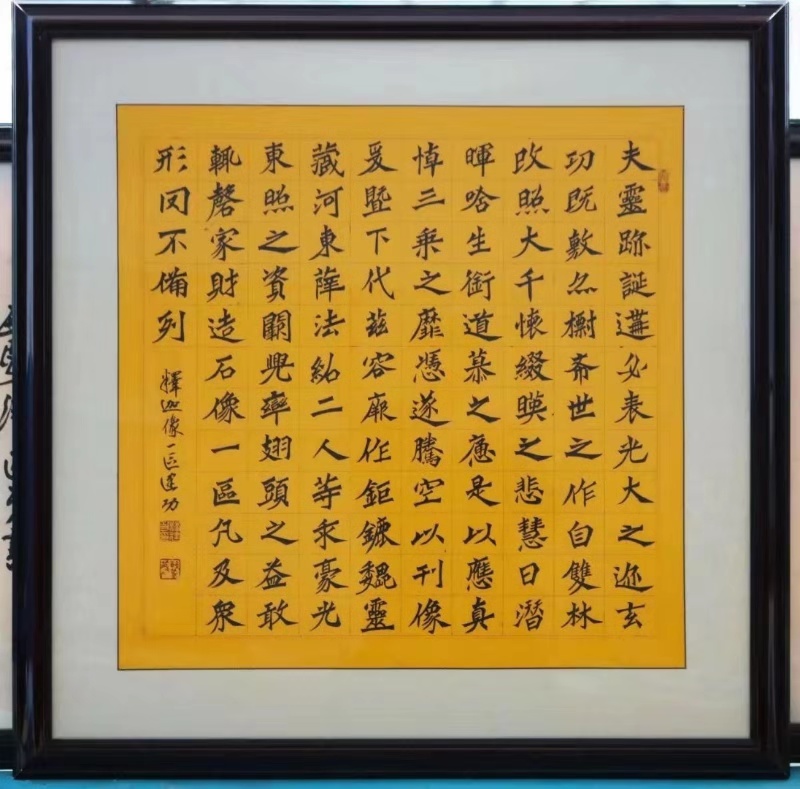 夫靈跡誕遘必表光大之迹玄
功既敷亦樹希世之作自雙林
改照大千懷綴暎之悲慧日潛
暉唅生銜道慕之是以應真
悼三乘之靡憑遂騰空以刊像
爰暨下代茲容厥作鉅鏕魏靈
藏河東薛法紹二人等求豪光
東照之資闕兜率翅頭之益敢
輒罄家財造石像一區凡及衆
形罔不備列
釋迦像一区功